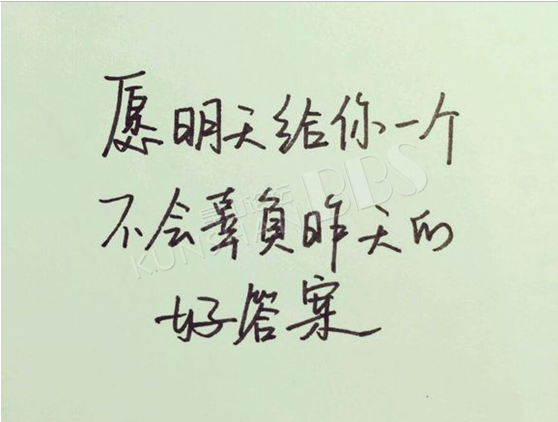 愿明天给你一个
不会辜负昨天的
好答案
BBS